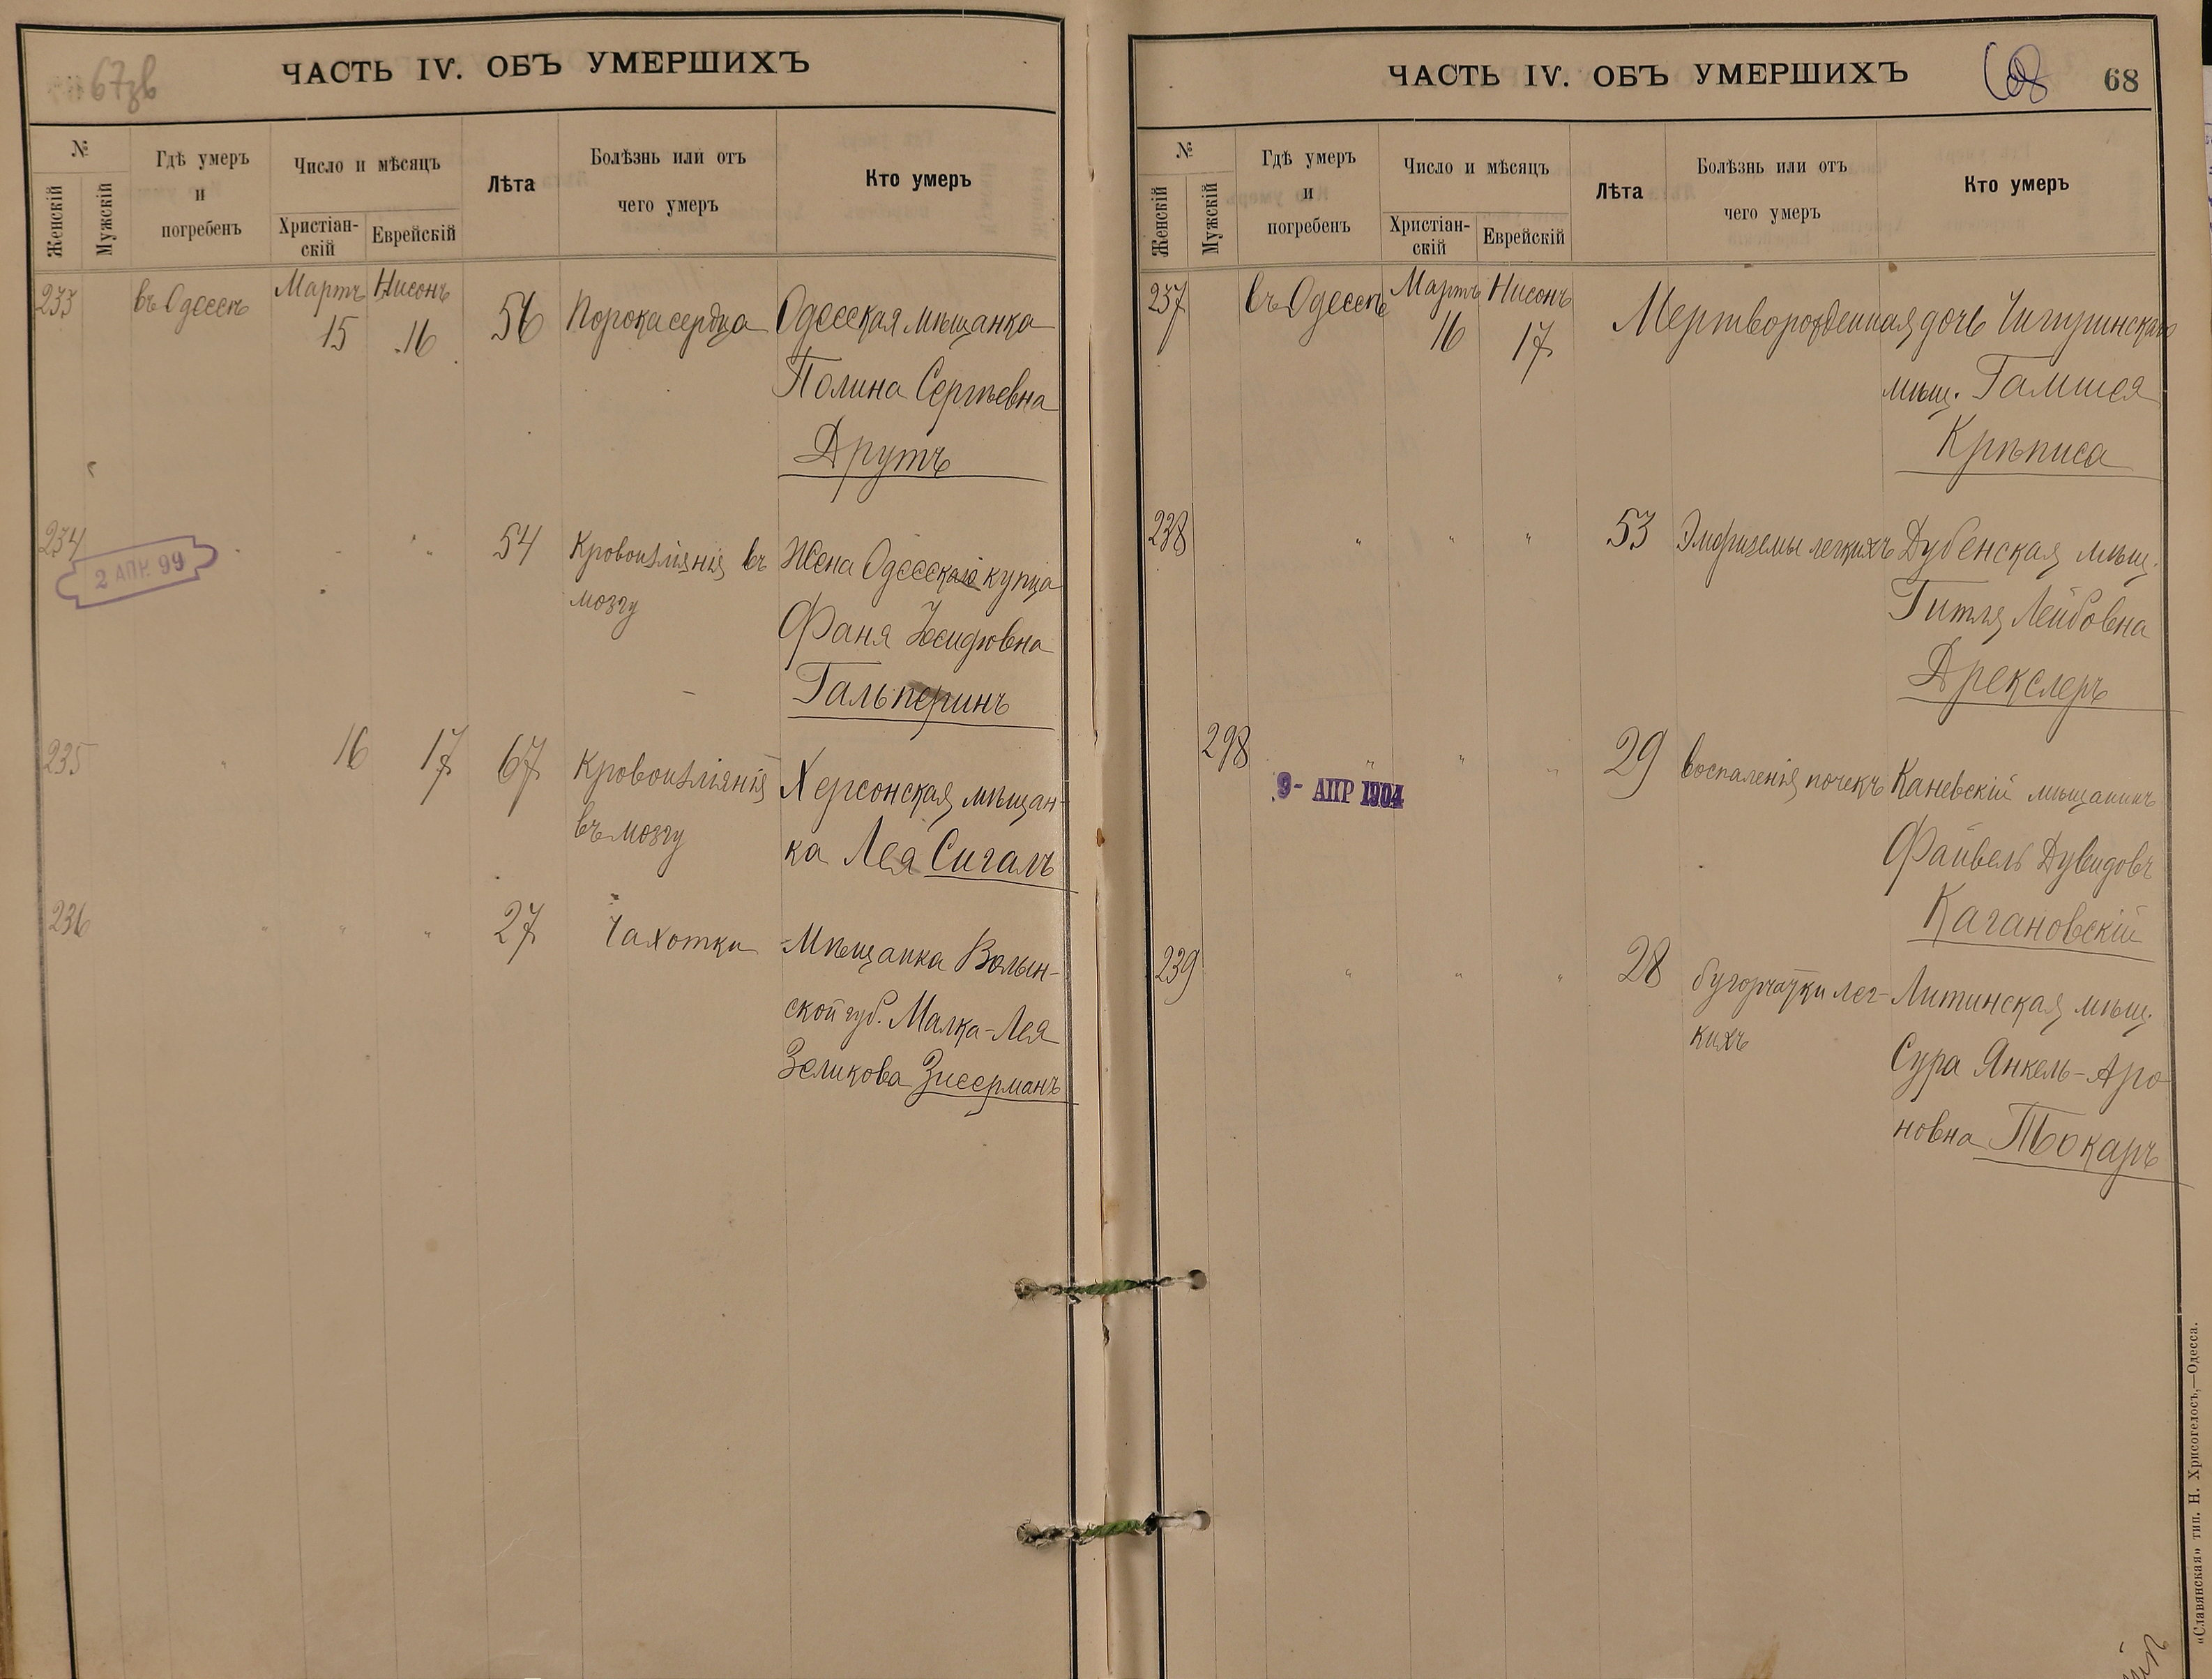 67зв
ЧАСТЬ IV. ОБЪ УМЕРШИХЪ
№
Женскій
Мужскій
Гдѣ умеръ
и
погребенъ
Число и мѣсяцъ
Христіан-
скій
Еврейскій
Лѣта
Болѣзнь или отъ
чего умеръ
Кто умеръ
233 въ Одессѣ Мартъ Нисонъ
15 16 56 Порока сердца Одесская мѣщанка
Полина Сергѣевна
Друтъ
234 " " " 54 Кровоизліянія въ Жена Одесскаго купца
мозгу
2 АПР. 99
Фаня
Гальперинъ
235 " 16 17 67 Кровоизліянія Херсонская мѣщан-
въ мозгу
ка Лея Сигалъ
236 " " " 27 Чахотки Мѣщанка Волын-
ской губ. Малка-Лея
Зеликова Зисерманъ
ЧАСТЬ IV. ОБЪ УМЕРШИХЪ
68
68
№
Женскій
Мужскій
Гдѣ умеръ
и
погребенъ
Число и мѣсяцъ
Христіан-
скій
Еврейскій
Лѣта
Болѣзнь или отъ
чего умеръ
Кто умеръ
237 въ Одессѣ Мартъ Нисонъ
16 17 Мертворожденная дочь Чигиринскаго
мѣщ.
Крѣписа
238 " " " 53 Эмфиземы легкихъ Дубенская мѣщ.
Гитля Лейбовна
Дрекслеръ
298 " " " 29 воспаленія почекъ Каневскій мѣщанинъ
9- АПР 1904
Файвель Дувидовъ
Кагановскій
239 " " " 28 бугорчатки лег- Литинская мѣщ.
кихъ
Сура Янкель-Аро
новна Токаръ
«Славянская» тип. Н. Хрисогелосъ,—Одесса.